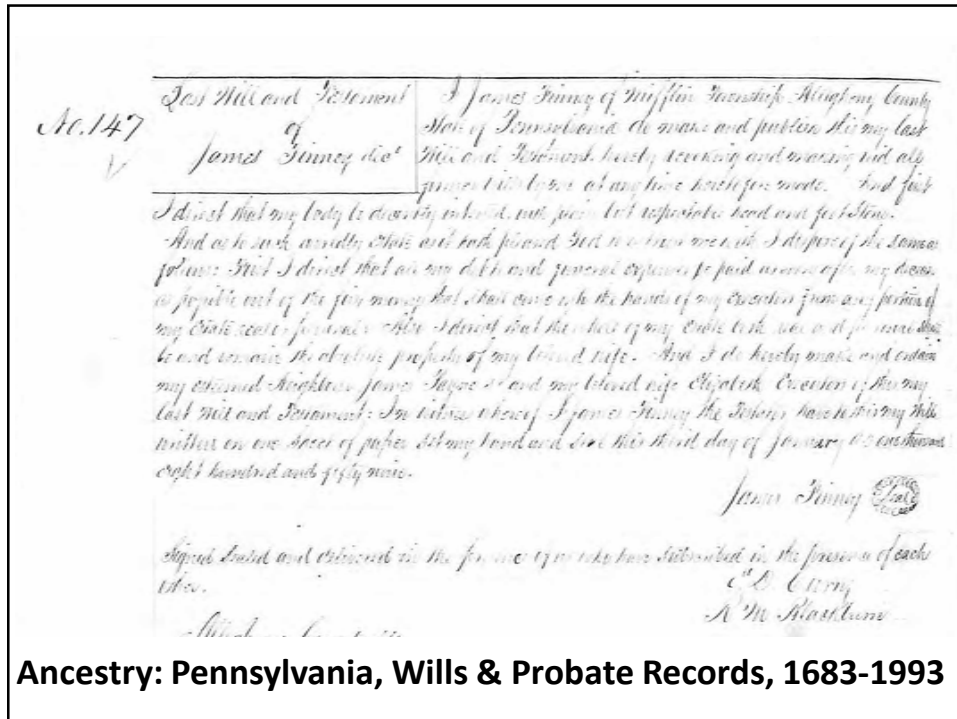 No. 147
Last Will and Testament
of
James Finney decd
I James Finney of Mifflin Township Allegheny County
State of Pennsylvania do make and publish this my last
Will and Testament hereby revoking and making void all
by me at any time heretofore made. And first
I direct that my body be decently interred, with plain but respectable head and feet Stone.
And as to such worldly estate as it hath pleased God to me with I dispose of the same as
follows First I direct that all my debts and funeral expenses be paid as soon after my
as possible out of the first money that shall come into the hands of my Executors from any portion of
my Estate real or personal. Also I direct that the whole of my Estate both real and personal shall
be and remain the absolute property of my beloved wife. And I do hereby make and ordain
my esteemed Neighbour James Payne and my beloved wife Elizabeth Executors of this my
last Will and Testament: In witness whereof I James Finney the Testator have to this my Will
written on one sheet of paper set my hand and seal this third day of January AD one thousand
eight hundred and fifty nine.
James Finney Seal
Signed Sealed and delivered in the presence of us who have subscribed in the presence of each
other.
D. Curry
R M Blackburn
Ancestry: Pennsylvania, Wills & Probate Records, 1683-1993